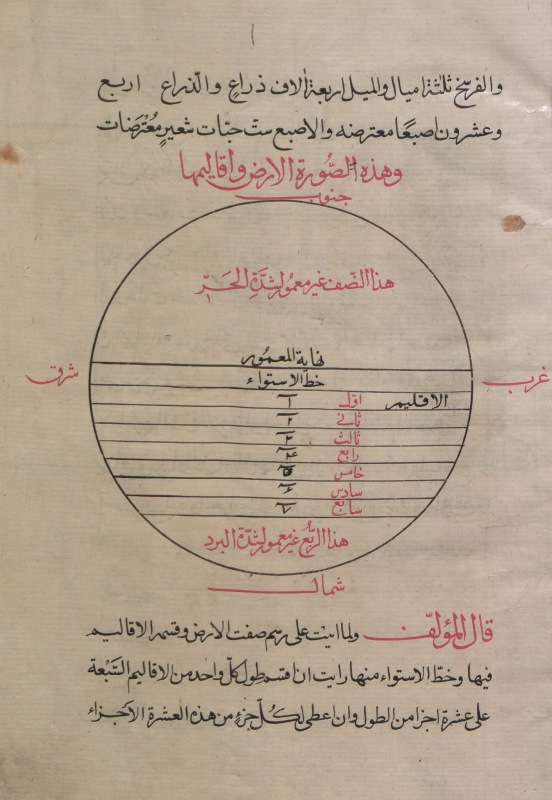 والفرسخ ثلثة اميال والميل اربعة الاف ذراع والذراع اربع
وعشرون اصبعًا معترضه والاصبع ستّ حبّات شعيرٍ معْترضات
وهذه الصّورة الارض وأقاليمها
جنوب
هذا النّصف غير معمور لشدَّةِ الحَرّ
نهاية المعمُور
خط الاستواء
شرق
غرب
الاقليم
اوّل ١
ثاني ٢
ثالث ٣
رابع ۴
خامس ۵
سادس ۶
سابع ٧
هذا الربّع غير معمور لشدّة البرد
شمال
قال المؤلّف ولما اتيت على رسم صفت الارض وقسم الاقاليم
فيها وخطّ الاستواء منها رايت ان اقسم طول كلّ واحد من الاقاليم السَّبْعة
على عشرة اجزا من الطول وان اعطى لكُلّ جزءٍ من هذه العشرة الاجزاء